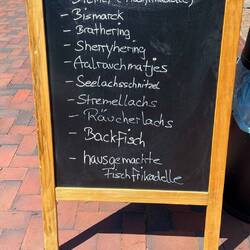 - Bismarck
- Brathering
- Sherryhering
- Aalrauchmatjes
- Seelachsschnitzel
- Stremellachs
- Räucherlachs
- Backfisch
- hausgemachte
Fischfrikadelle